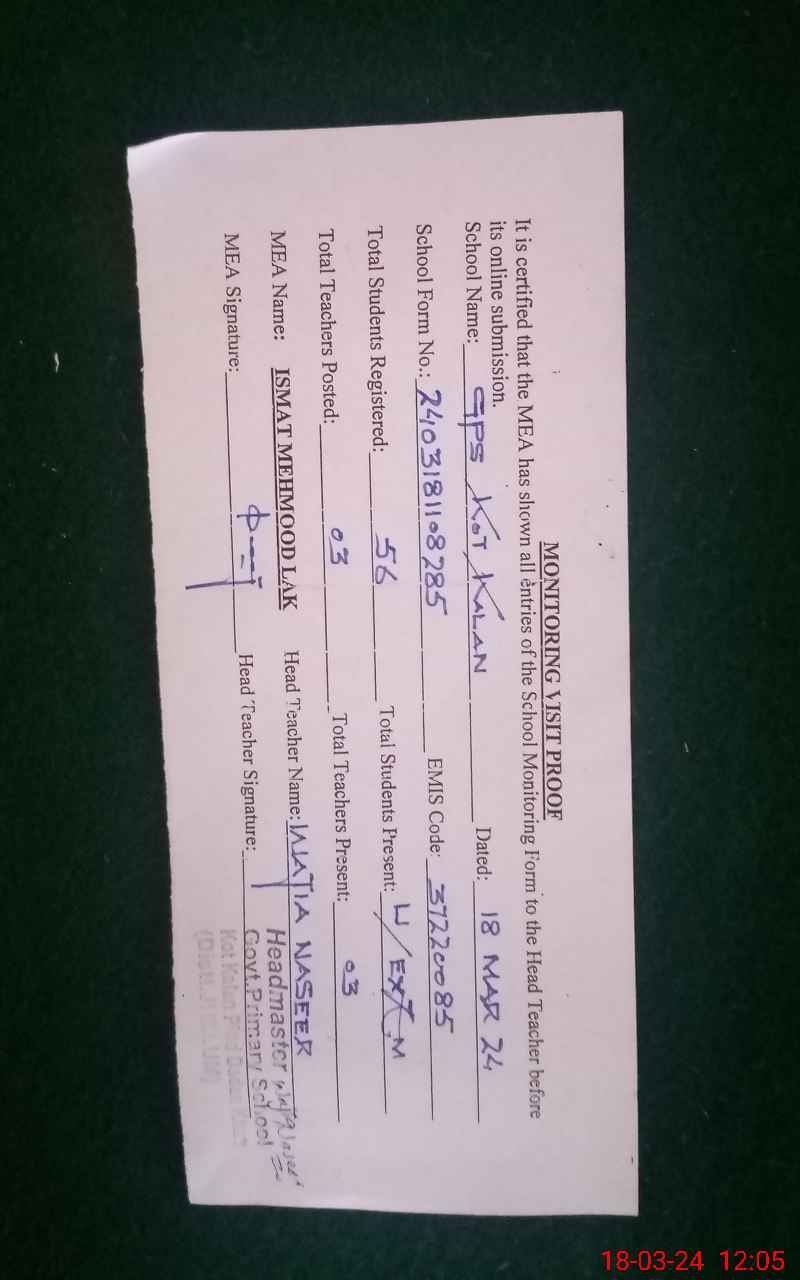 MONITORING VISIT PROOF
It is certified that the MEA has shown all entries of the School Monitoring Form to the Head Teacher before
its online submission.
School Name: GPS KOT KALAN Dated: 18 MAR 24
School Form No.: 2403181108285 EMIS Code: 37220085
Total Students Registered: 56 Total Students Present: W/EXAM
Total Teachers Posted: 03 Total Teachers Present: 03
MEA Name: ISMAT MEHMOOD LAK Head Teacher Name: WAJIA NASEER
MEA Signature: Head Teacher Signature:
Headmaster
Govt. Primary School
Kot Kalan
18-03-24 12:05